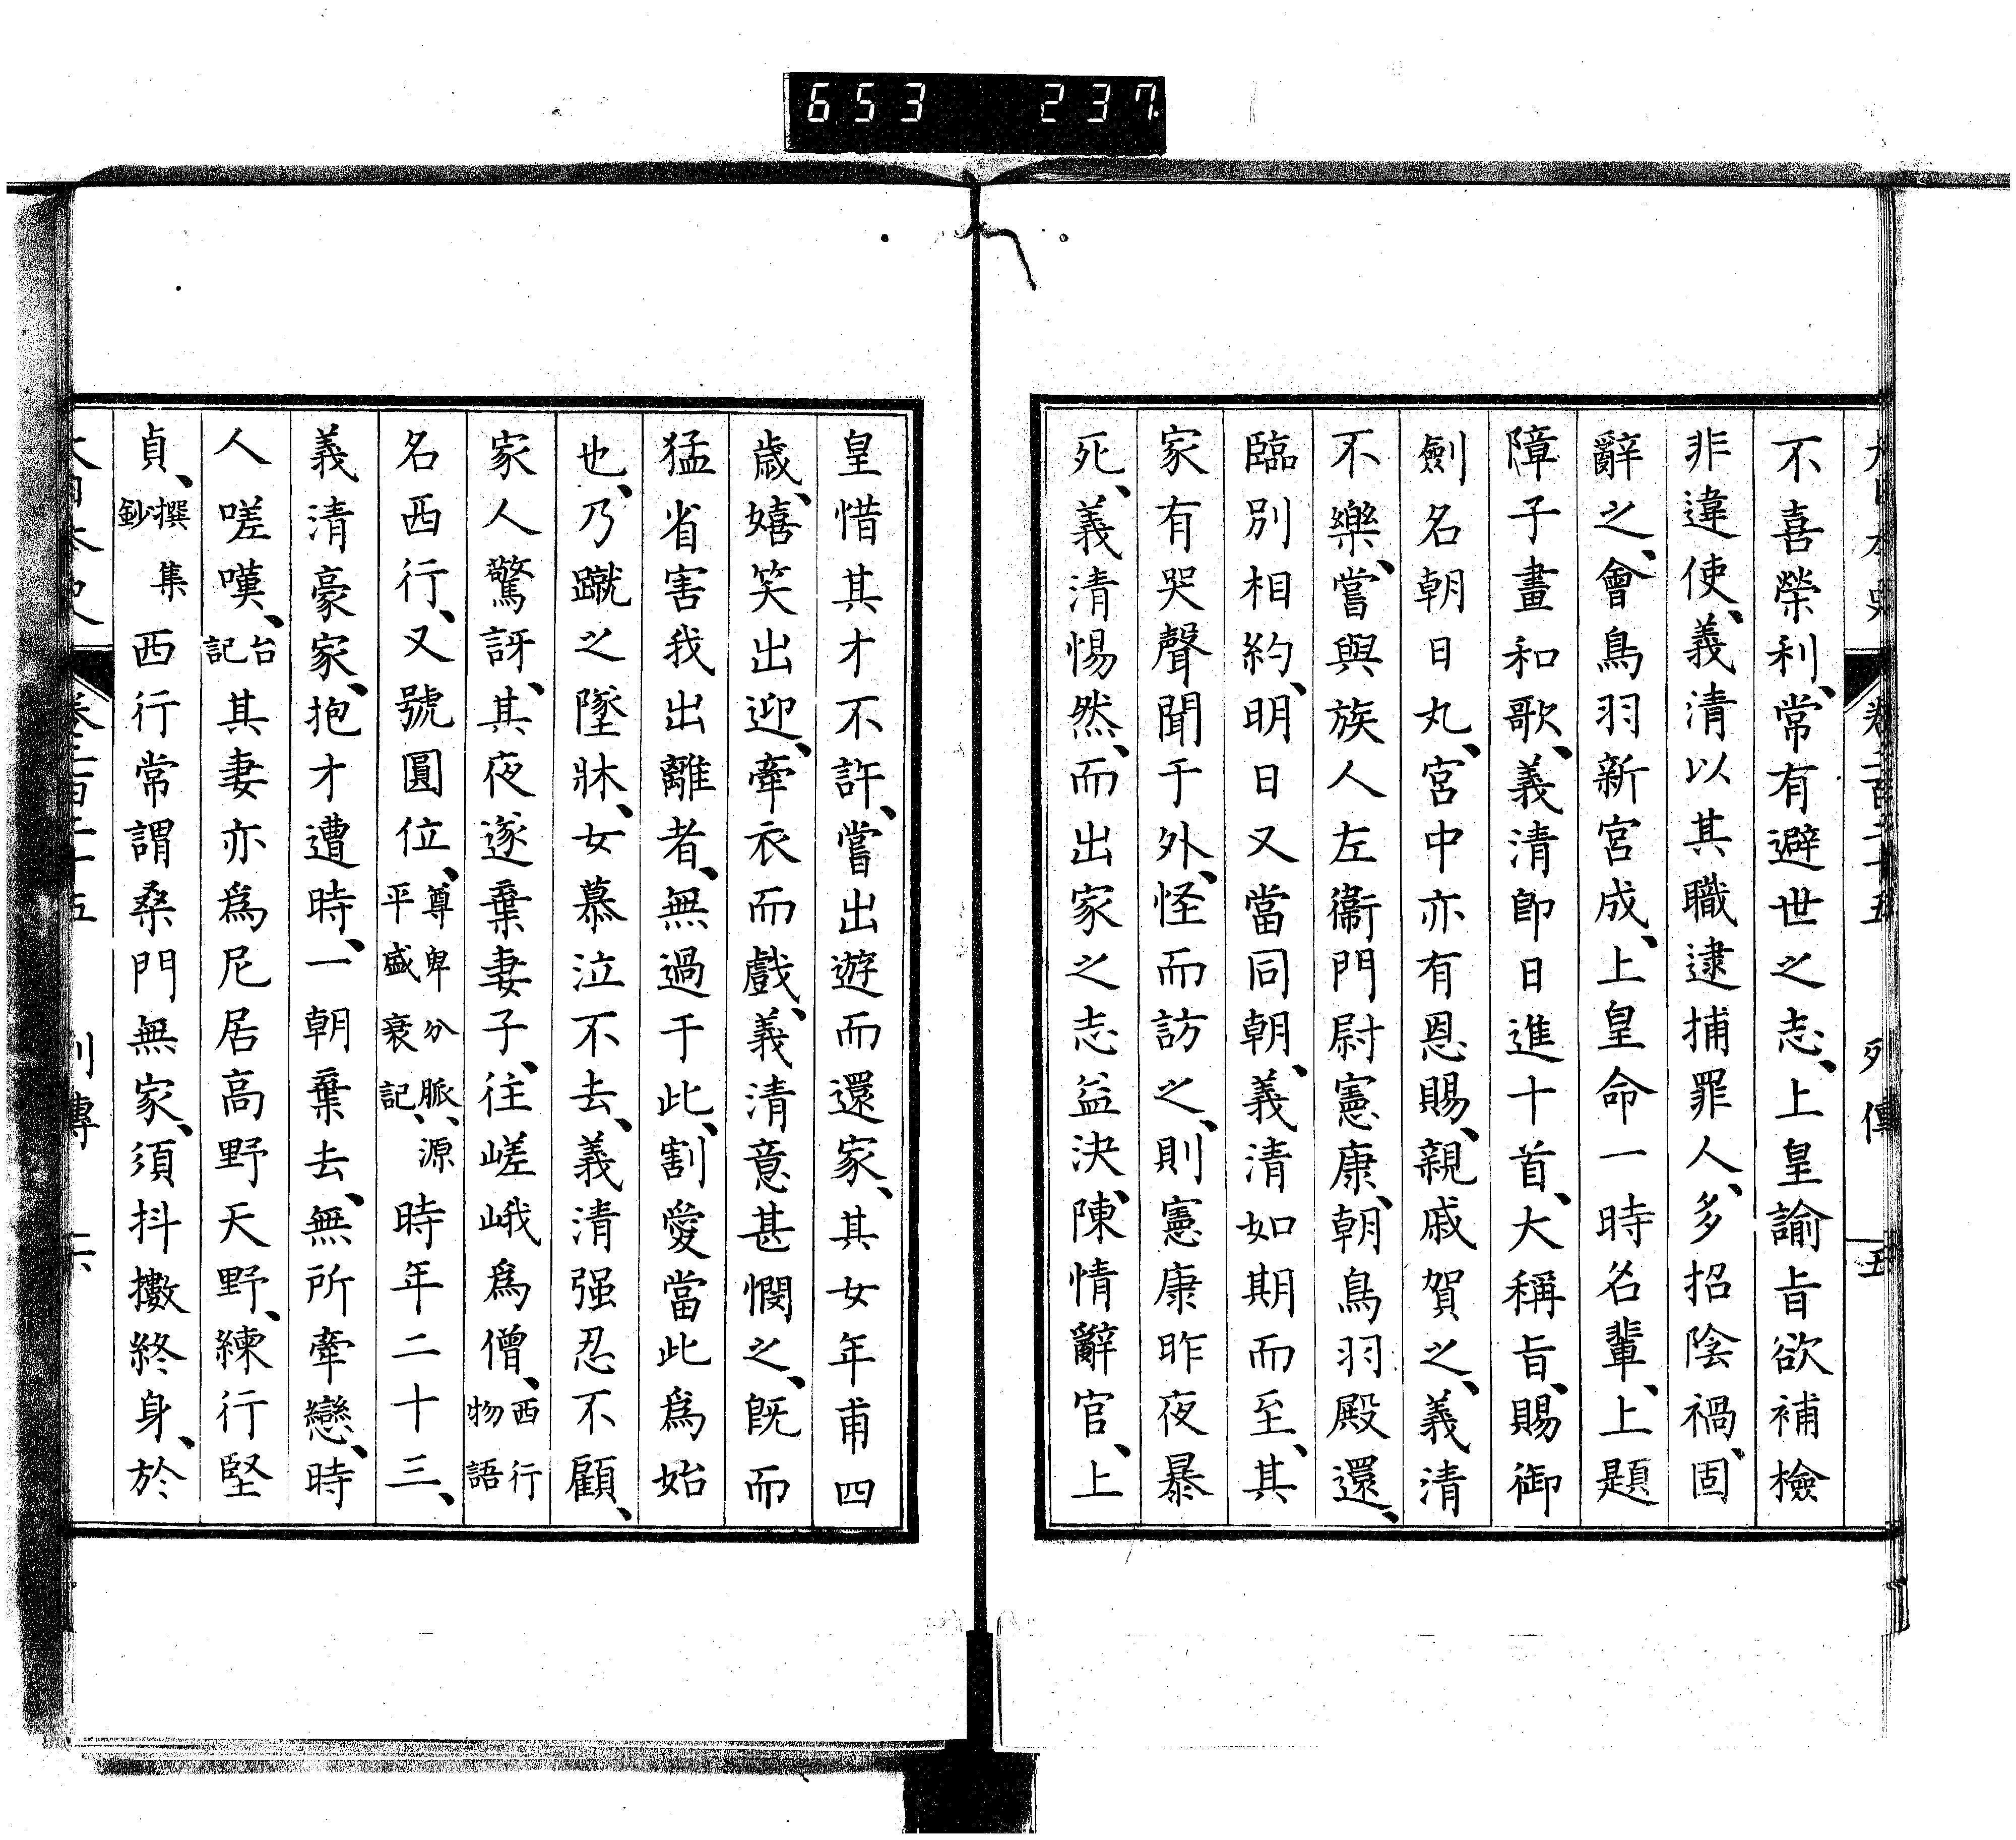 653 237
大日本史 卷二百二十五 列傳 五
不喜榮利、常有避世之志、上皇諭旨欲補檢
非違使、義清以其職逮捕罪人、多招陰禍、固
辭之、會鳥羽新宮成、上皇命一時名輩、上題
障子畫和歌、義清卽日進十首、大稱旨、賜御
劍名朝日丸、宮中亦有恩賜、親戚賀之、義清
不樂、嘗與族人左衞門尉憲康、朝鳥羽殿還、
臨別相約、明日又當同朝、義清如期而至、其
家有哭聲聞于外、怪而訪之、則憲康昨夜暴
死、義清惕然、而出家之志益決、陳情辭官、上
皇惜其才不許、嘗出遊而還家、其女年甫四
歲、嬉笑出迎、牽衣而戲、義清意甚憫之、旣而
猛省害我出離者、無過于此、割愛當此爲始
也、乃蹴之墜牀、女慕泣不去、義清强忍不顧、
家人驚訝、其夜遂棄妻子、往嵯峨爲僧、西行物語
名西行、又號圓位、尊卑分脈、源平盛衰記、時年二十三、
義清豪家、抱才遭時、一朝棄去、無所牽戀、時
人嗟嘆、台記其妻亦爲尼居高野天野、練行堅
貞、撰集鈔西行常謂桑門無家、須抖擻終身、於
大日本史 卷二百二十五 列傳 六